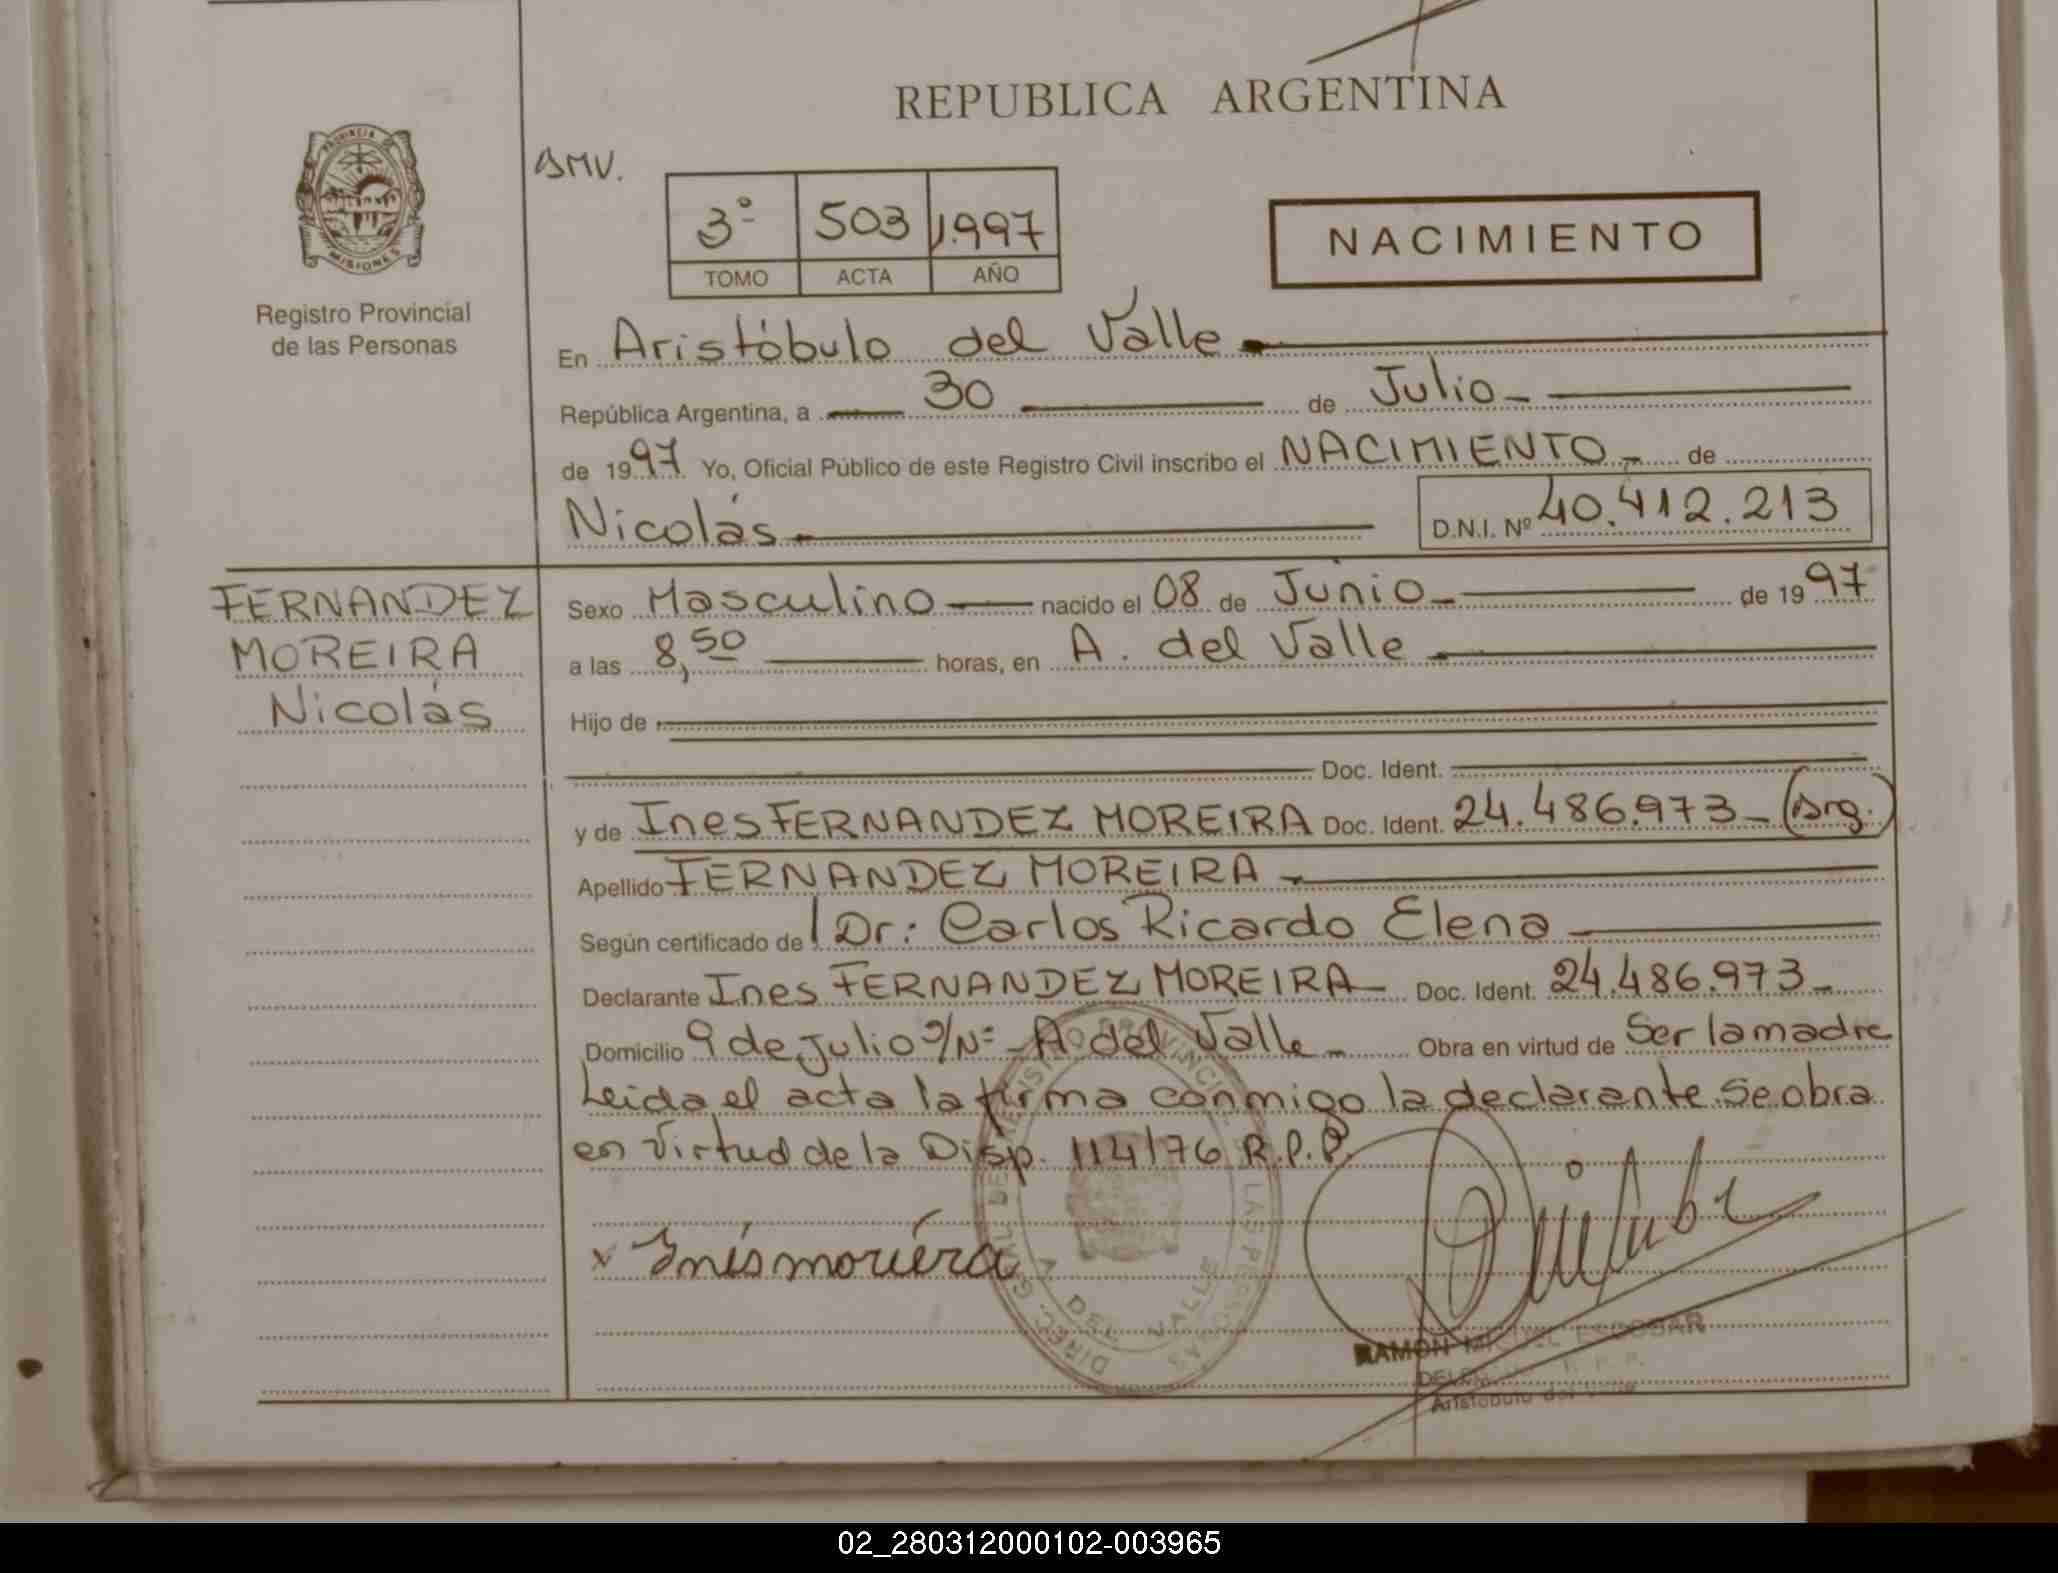 REPUBLICA ARGENTINA
PROVINCIA DE MISIONES
Registro Provincial
de las Personas
AMV.
3º 503 1.997
TOMO ACTA AÑO
NACIMIENTO
En Aristóbulo del Valle
República Argentina, a 30 de Julio
de 1997 Yo, Oficial Público de este Registro Civil inscribo el NACIMIENTO de
Nicolás D.N.I. Nº 40.412.213
FERNANDEZ
MOREIRA
Nicolás
Sexo Masculino nacido el 08 de Junio de 1997
a las 8,50 horas, en A. del Valle
Hijo de
Doc. Ident.
y de Ines FERNANDEZ MOREIRA Doc. Ident. 24.486.973 (Arg.)
Apellido FERNANDEZ MOREIRA
Según certificado de Dr: Carlos Ricardo Elena
Declarante Ines FERNANDEZ MOREIRA Doc. Ident. 24.486.973
Domicilio 9 de Julio S/Nº - A del Valle Obra en virtud de Ser la madre
Leida el acta la firma conmigo la declarante. Se obra
en Virtud de la Disp. 114/76 R.P.P.
x Inés moriéra
DIREC. GRAL DE REGISTRO PROVINCIAL DE LAS PERSONAS
A. DEL VALLE
RAMON MIGUEL ESCOBAR
R. P. P.
Aristobulo del Valle
02_280312000102-003965